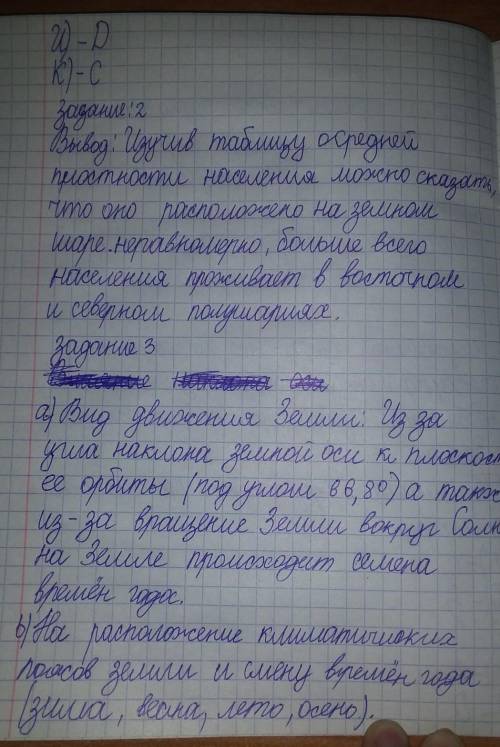 И) - D
К) - C
Задание: 2
Вывод: Изучив таблицу о средней
плостности населения можно сказать,
что оно расположено на земном
шаре неравномерно, больше всего
населения проживает в восточном
и северном полушариях.
Задание 3
а) Вид движения Земли: Из за
угла наклона земной оси к плоскос
ее орбиты (под углом 66,8°) а такж
из-за вращение Земли вокруг Солн
на Земле происходит семена
времён года.
b) На расположение климатических
поясов земли и смену времён года
(зима, весна, лето, осень).